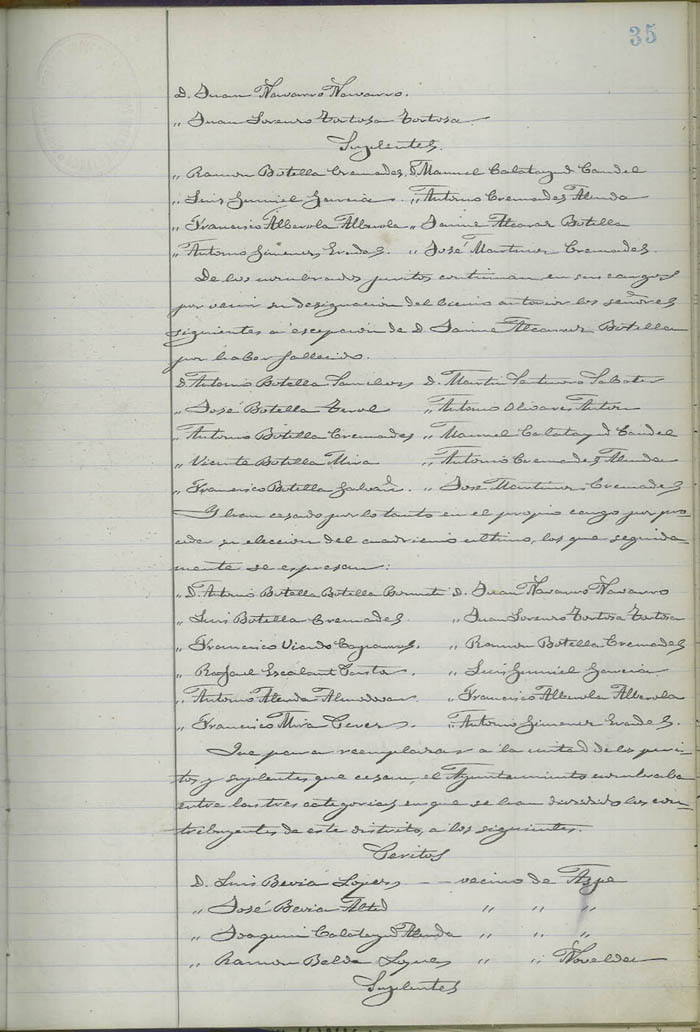 35
D. Juan Navarro Navarro.
„ Juan Lorenzo Tortosa Tortosa
Suplentes.
„ Ramon Botella Cremades. D. Manuel Calatayud Candel
„ Luis Gumiel Garcia. „ Antonio Cremades Alenda
„ Francisco Alberola Alberola „ Jaime Alcaraz Botella
„ Antonio Gimenez Erades. „ José Martinez Cremades.
De los nombrados peritos continuan en sus cargos
por venir su designacion del bienio anterior los señores
siguientes á escepcion de D. Jaime Alcaraz Botella
por haber fallecido.
D. Antonio Botella Sanchez D. Martin Santonio Sabater
„ José Botella Terol „ Antonio Olivares Anton
„ Antonio Botella Cremades „ Manuel Calatayud Candel
„ Vicente Botella Mira „ Antonio Cremades Alenda
„ Francisco Botella Galvañ. „ José Martinez Cremades
Y han cesado por lo tanto en el propio cargo por pro
ceder su eleccion del cuadrienio ultimo, los que seguida
mente se expresan:
„ D. Antonio Botella Botella D. Juan Navarro Navarro
„ Luis Botella Cremades. „ Juan Lorenzo Tortosa Tortosa
„ Francisco „ Ramon Botella Cremades
„ Rafael Escolano Pastor. „ Luis Gumiel Garcia
„ Antonio Alenda Almodovar. „ Francisco Alberola Alberola
„ Francisco Mira „ Antonio Gimenez Erades.
Que para reemplazar á la mitad de los peri-
tos y suplentes que cesan, el Ayuntamiento nombraba
entre las tres categorias en que se han dividido los con-
tribuyentes de este distrito, a los siguientes.
Peritos
D. Luis Beviá Lopez — vecino de Aspe
„ José Bevia Alted „ „ „
„ Joaquin Calatayud Alenda „ „ „
„ Ramon Belda Lopez „ „ Novelda
Suplentes